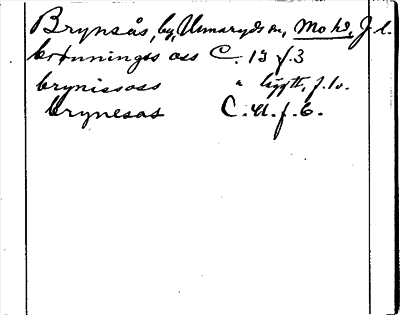 Brynsås, by, Unnaryds sn, Mo hd, J. l.
brunnings oss C. 13 f. 3
brynissoss " f. 1v.
brynesas C. U. f. 6.